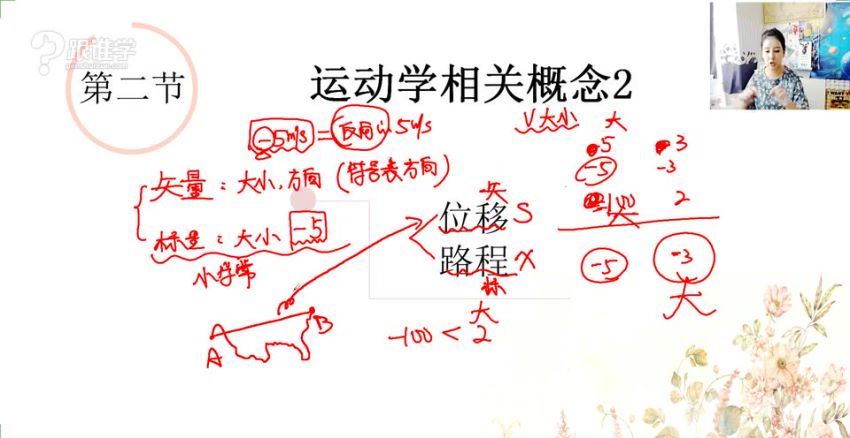 跟谁学
第二节
运动学相关概念2
-5m/s = 反向以5m/s
V大小 大
5 3
-5 -3
-100 2
大
-5 -3
大
矢量：大小，方向（符号表方向）
标量：大小 -5
小学常
矢
位移 S
路程 X
标
大
-100 < 2
A B